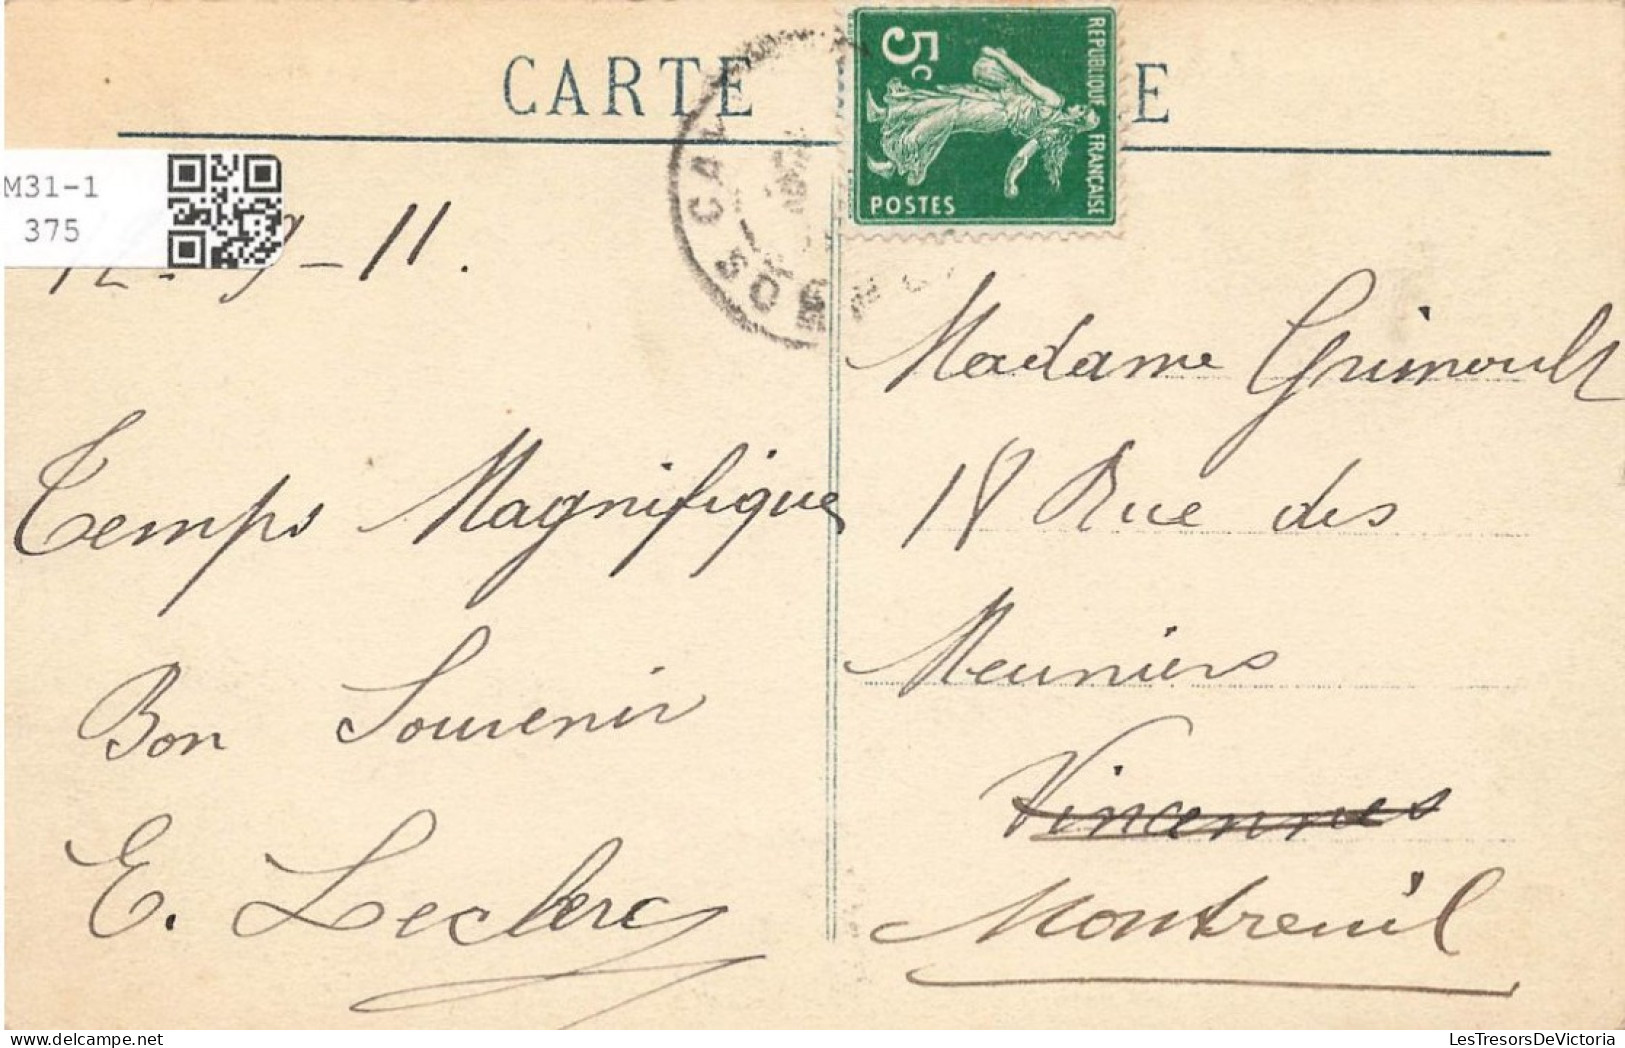 CARTE
E
5c
REPUBLIQUE FRANÇAISE
POSTES
M31-1
375
12-9-11.
Temps Magnifique
Bon Souvenir
E. Leclerc
Madame Grimoult
18 Rue des
Meuniers
Vincennes
Montreuil
LesTresorsDeVictoria
delcampe.net